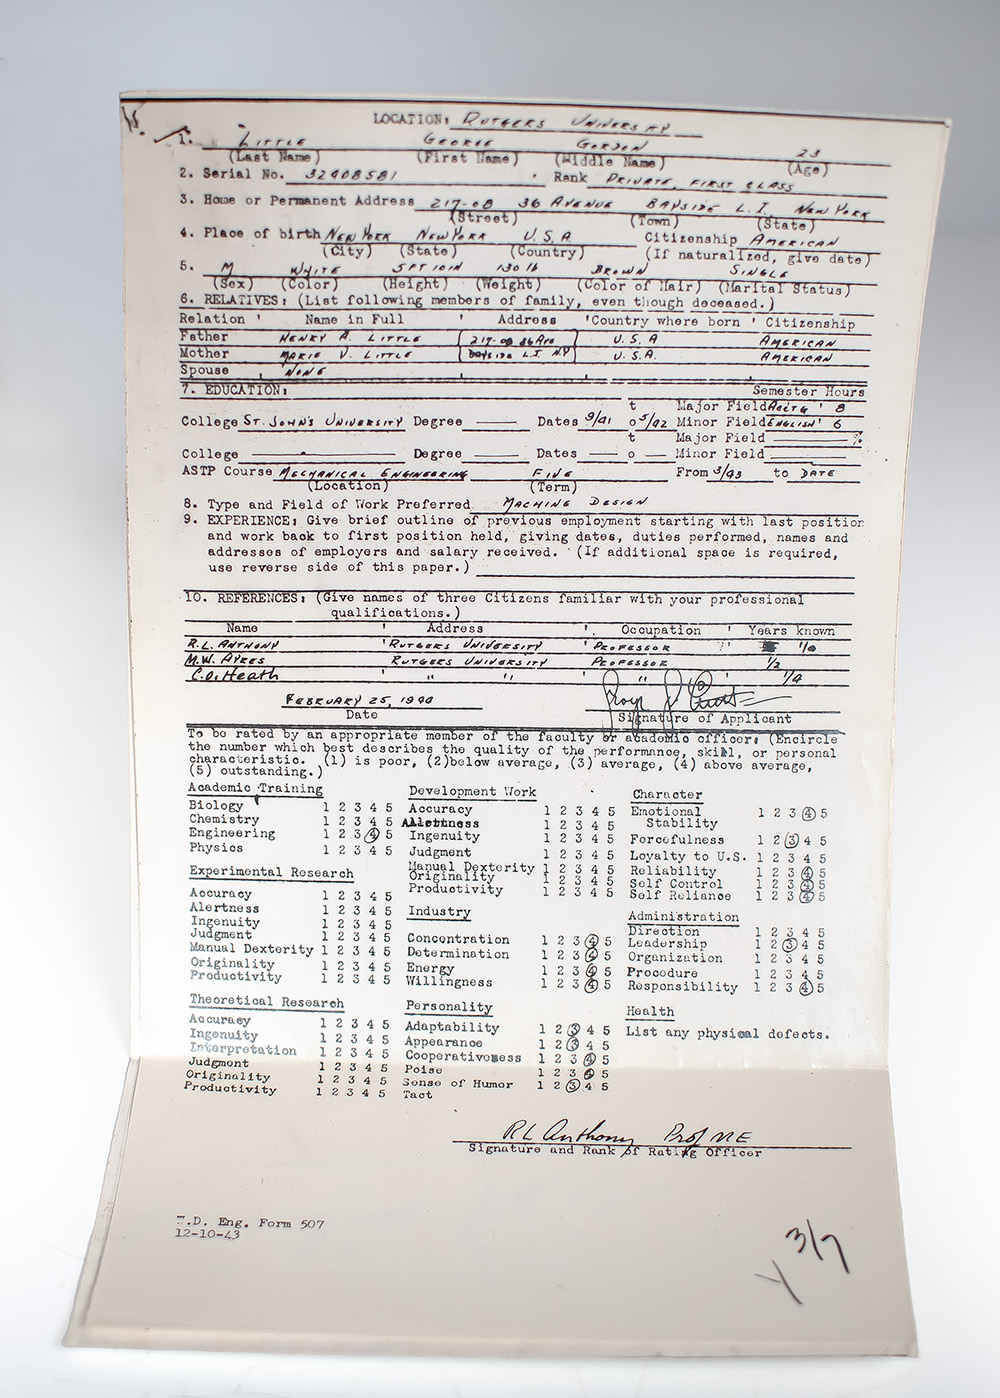 LOCATION: RUTGERS UNIVERSITY
1. LITTLE GEORGE GORDON 23
(Last Name) (First Name) (Middle Name) (Age)
2. Serial No. 32408581 Rank PRIVATE, FIRST CLASS
3. Home or Permanent Address 217-08 36 AVENUE BAYSIDE L.I. NEW YORK
(Street) (Town) (State)
4. Place of birth NEW YORK NEW YORK U.S.A Citizenship AMERICAN
(City) (State) (Country) (If naturalized, give date)
5. M WHITE 5FT 10IN 130 lb BROWN SINGLE
(Sex) (Color) (Height) (Weight) (Color of Hair) (Marital Status)
6. RELATIVES: (List following members of family, even though deceased.)
Relation ' Name in Full ' Address 'Country where born ' Citizenship
Father HENRY A. LITTLE 217-08 36 Ave U.S.A AMERICAN
Mother MARIE V. LITTLE BAYSIDE L.I. NY U.S.A. AMERICAN
Spouse NONE
7. EDUCATION: Semester Hours
College ST. JOHN'S UNIVERSITY Degree Dates 9/41 to 5/42 Major Field ACCTG ' 8
Minor Field ENGLISH ' 6
College Degree Dates to Major Field
Minor Field
ASTP Course MECHANICAL ENGINEERING FIVE From 3/43 to DATE
(Location) (Term)
8. Type and Field of Work Preferred MACHINE DESIGN
9. EXPERIENCE: Give brief outline of previous employment starting with last position
and work back to first position held, giving dates, duties performed, names and
addresses of employers and salary received. (If additional space is required,
use reverse side of this paper.)
10. REFERENCES: (Give names of three Citizens familiar with your professional
qualifications.)
Name ' Address ' Occupation ' Years known
R.L. ANTHONY 'RUTGERS UNIVERSITY ' PROFESSOR ' 1/2
M.W. AYRES RUTGERS UNIVERSITY PROFESSOR 1/2
C.O. Heath " " " 1/4
FEBRUARY 25, 1944
Date Signature of Applicant
To be rated by an appropriate member of the faculty or academic officer: (Encircle
the number which best describes the quality of the performance, skill, or personal
characteristic. (1) is poor, (2)below average, (3) average, (4) above average,
(5) outstanding.)
Academic Training
Biology 1 2 3 4 5
Chemistry 1 2 3 4 5
Engineering 1 2 3 4 5
Physics 1 2 3 4 5
Experimental Research
Accuracy 1 2 3 4 5
Alertness 1 2 3 4 5
Ingenuity 1 2 3 4 5
Judgment 1 2 3 4 5
Manual Dexterity 1 2 3 4 5
Originality 1 2 3 4 5
Productivity 1 2 3 4 5
Theoretical Research
Accuracy 1 2 3 4 5
Ingenuity 1 2 3 4 5
Interpretation 1 2 3 4 5
Judgment 1 2 3 4 5
Originality 1 2 3 4 5
Productivity 1 2 3 4 5
Development Work
Accuracy 1 2 3 4 5
Alertness 1 2 3 4 5
Ingenuity 1 2 3 4 5
Judgment 1 2 3 4 5
Manual Dexterity 1 2 3 4 5
Originality 1 2 3 4 5
Productivity 1 2 3 4 5
Industry
Concentration 1 2 3 4 5
Determination 1 2 3 4 5
Energy 1 2 3 4 5
Willingness 1 2 3 4 5
Personality
Adaptability 1 2 3 4 5
Appearance 1 2 3 4 5
Cooperativeness 1 2 3 4 5
Poise 1 2 3 4 5
Sense of Humor 1 2 3 4 5
Tact
Character
Emotional 1 2 3 4 5
Stability
Forcefulness 1 2 3 4 5
Loyalty to U.S. 1 2 3 4 5
Reliability 1 2 3 4 5
Self Control 1 2 3 4 5
Self Reliance 1 2 3 4 5
Administration
Direction 1 2 3 4 5
Leadership 1 2 3 4 5
Organization 1 2 3 4 5
Procedure 1 2 3 4 5
Responsibility 1 2 3 4 5
Health
List any physical defects.
RL Anthony Prof ME
Signature and Rank of Rating Officer
W.D. Eng. Form 507
12-10-43
3/7
Y